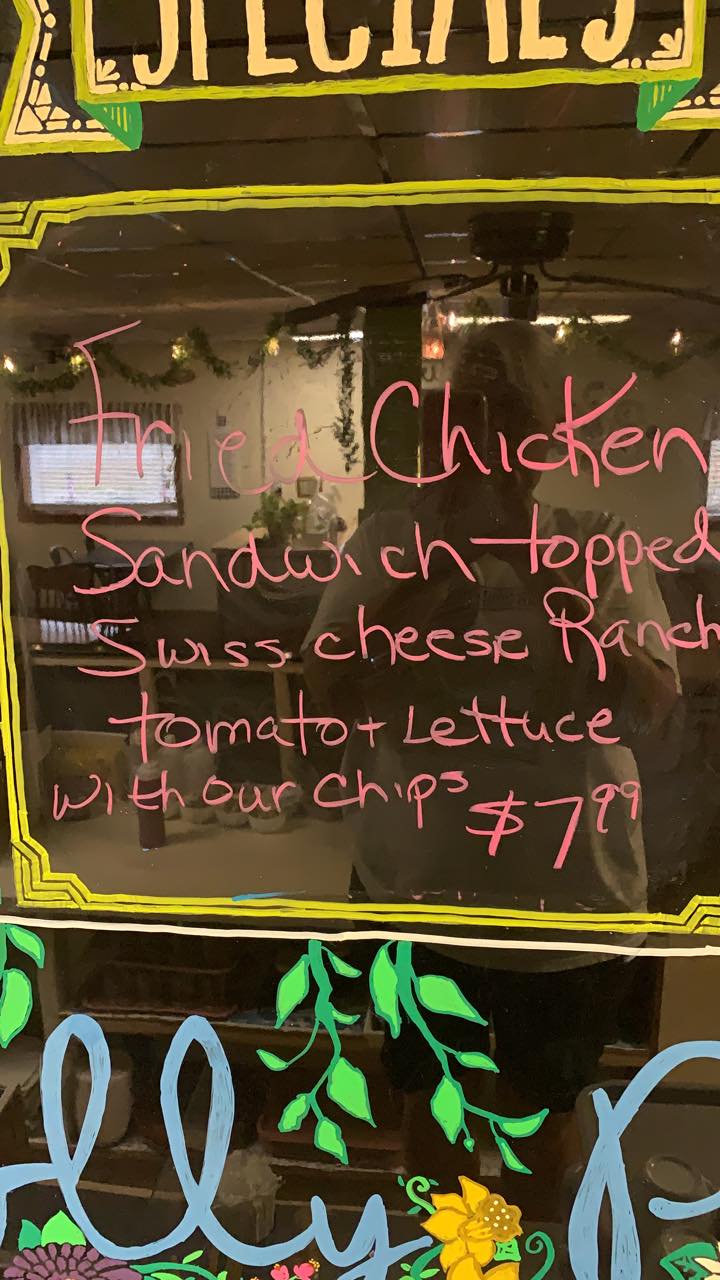 SPECIALS
Fried Chicken
Sandwich topped
Swiss cheese Ranch
tomato + Lettuce
with our chips $7.99
olly P